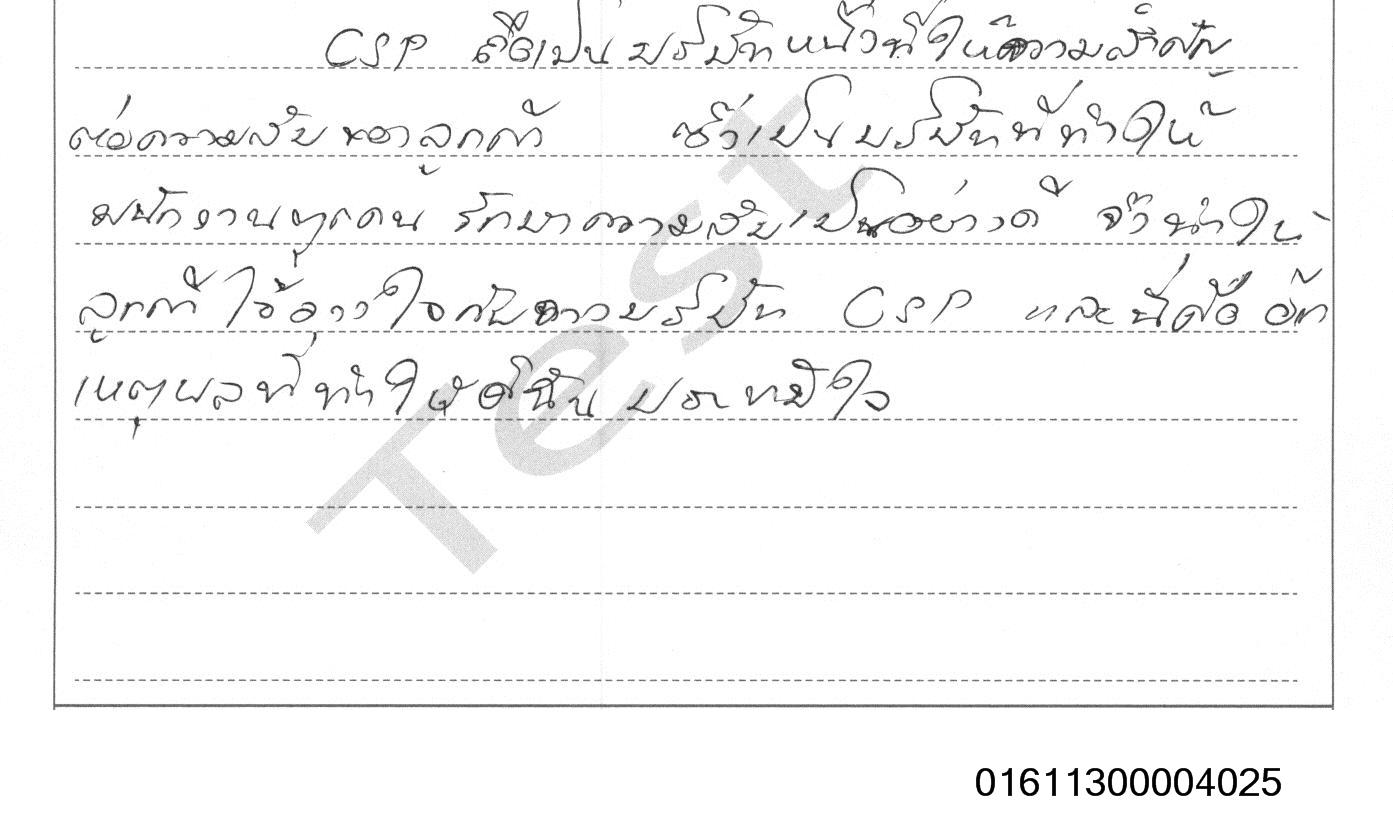 CSP ถือเป็นบริษัทหนึ่งที่ให้ความสำคัญ
ต่อความลับของลูกค้า ซึ่งเป็นบริษัทที่ทำให้
พนักงานทุกคน รักษาความลับเป็นอย่างดี จึงทำให้
ลูกค้าไว้วางใจกับทางบริษัท CSP และนี่คือ อีก
เหตุผลที่ทำให้ดิฉัน ประทับใจ
Test
01611300004025